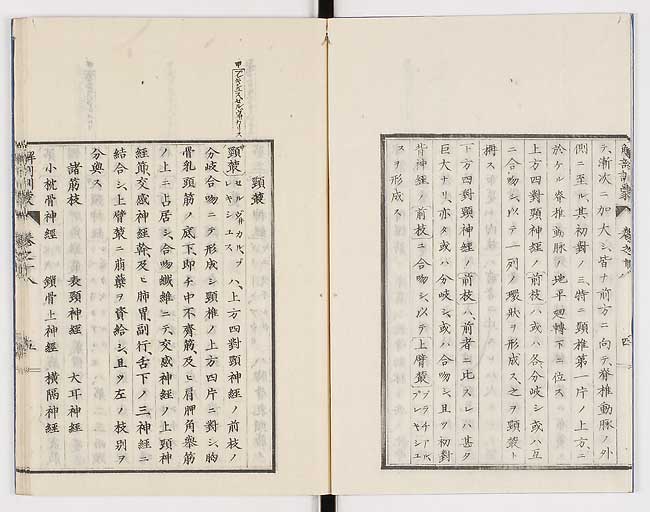 テ、漸次ニ加大シ、皆ナ前方ニ向テ、脊椎動脈ノ外
側ニ至ル、其初對ノミ、特ニ頸椎第一片ノ上方、ニ
於ケル脊椎動脈ノ地平廻轉下ニ位ス
上方四對頸神經ノ前枝ハ、或ハ各分岐シ或ハ互
ニ合吻シ、以テ一列ノ環狀ヲ形成ス、之ヲ頸叢ト
稱ス
下方四對頸神經ノ前枝ハ、前者ニ比スレハ甚タ
巨大ナリ、亦タ或ハ分岐シ、或ハ合吻シ、且ツ初對
背神經ノ前枝ニ合吻シ、以テ上臂叢
スヲ形成ス
頸叢
頸叢 ハ、上方四對頸神經ノ前枝ノ
分岐合吻ニテ形成シ、頸椎ノ上方四片ニ對シ、胸
骨乳頭筋ノ底下、即チ中不齊筋、及ヒ肩胛角擧筋
ノ上ニ占居シ、合吻纖維ニテ、交感神經ノ上頸神
經節、交感神經幹、及ヒ肺胃、副行、舌下ノ三神經ニ
結合シ、上臂叢ニ荊藥ヲ資給シ、且ツ左ノ枝別ヲ
分與ス
諸筋枝 表頸神經 大耳神經
小枕骨神經 鎖骨上神經 橫隔神經